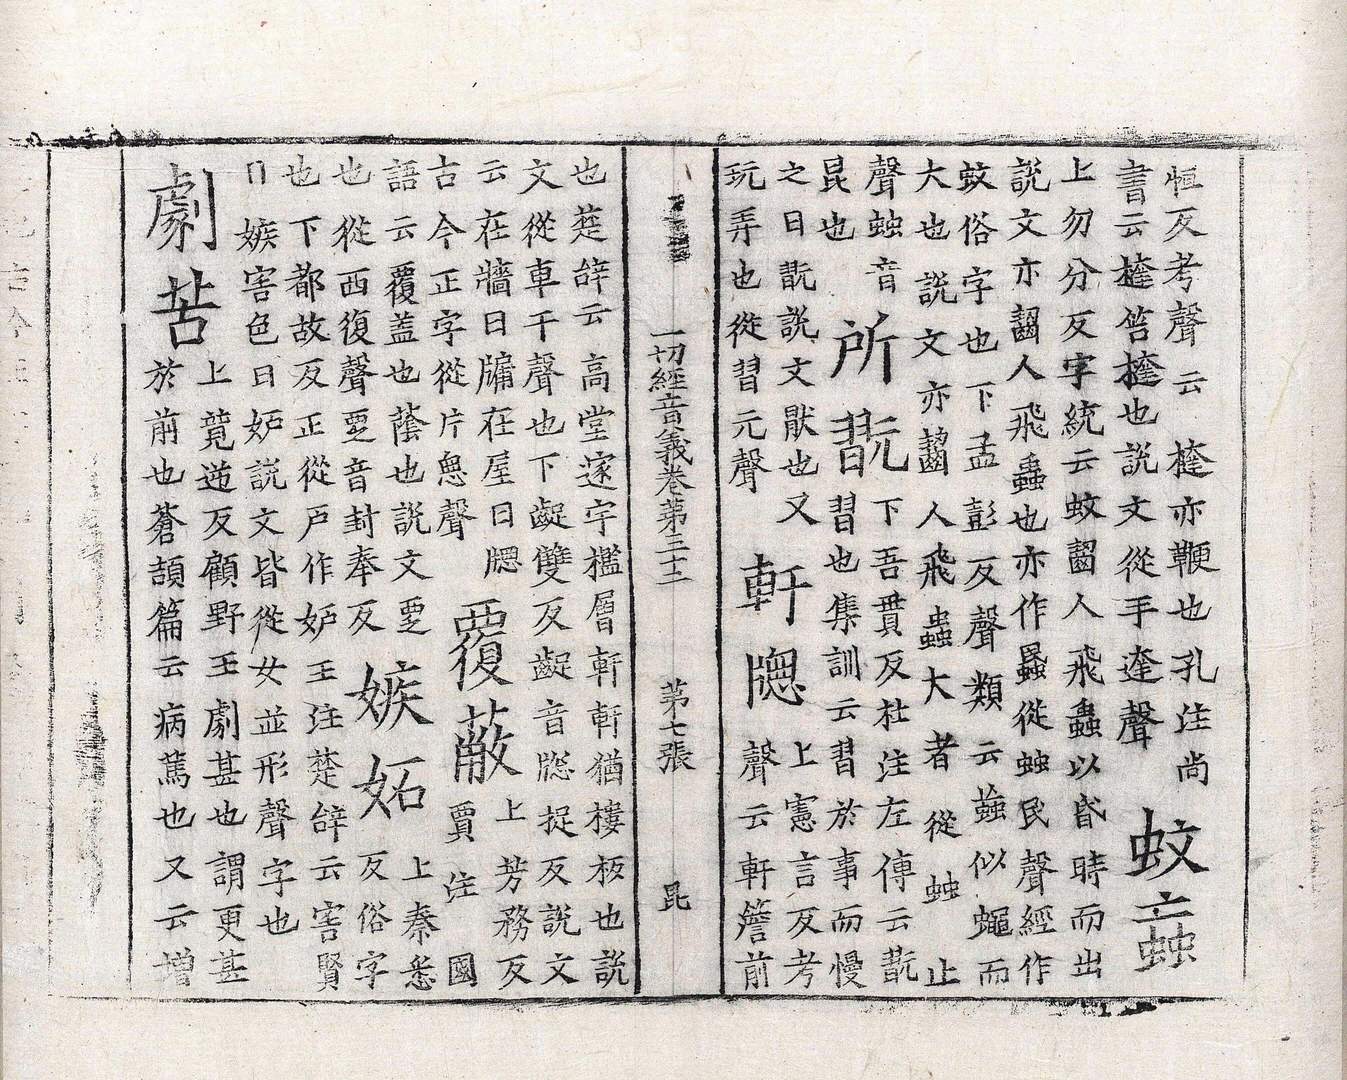 恒反考聲云𣙙亦鞭也孔注尚
書云𣙙笞𣙙也説文從手達聲 蚊䖟
上勿分反字統云蚊齧人飛蟲以昏時而出
説文亦齧人飛蟲也亦作蟁從䖵民聲經作
蚊俗字也下孟彭反聲類云䖟似蠅而
大也説文亦齧人飛蟲大者從䖵亡
聲䖵音昆也 所翫 下吾貫反杜注左傳云翫
習也集訓云習於事而慢
之曰翫説文猒也又
玩弄也從習元聲 軒牕 上憲言反考
聲云軒簷前
也楚辞云高堂邃宇檻層軒軒猶樓板也説
文從車干聲也下齪雙反齪音牕捉反説文
云在牆曰牖在屋曰牕
古今正字從片悤聲 覆蔽 上芳務反
賈注國
語云覆蓋也䕃也説文覂
也從西復聲覂音封奉反 嫉妬 上秦悉
反俗字
也下都故反正從戸作妒王注楚辞云害賢
曰嫉害色曰妒説文皆從女並形聲字也
劇苦 上竟逆反顧野王劇甚也謂更甚
於前也蒼頡篇云病篤也又云增
一切經音義卷第三十二 第七張 昆